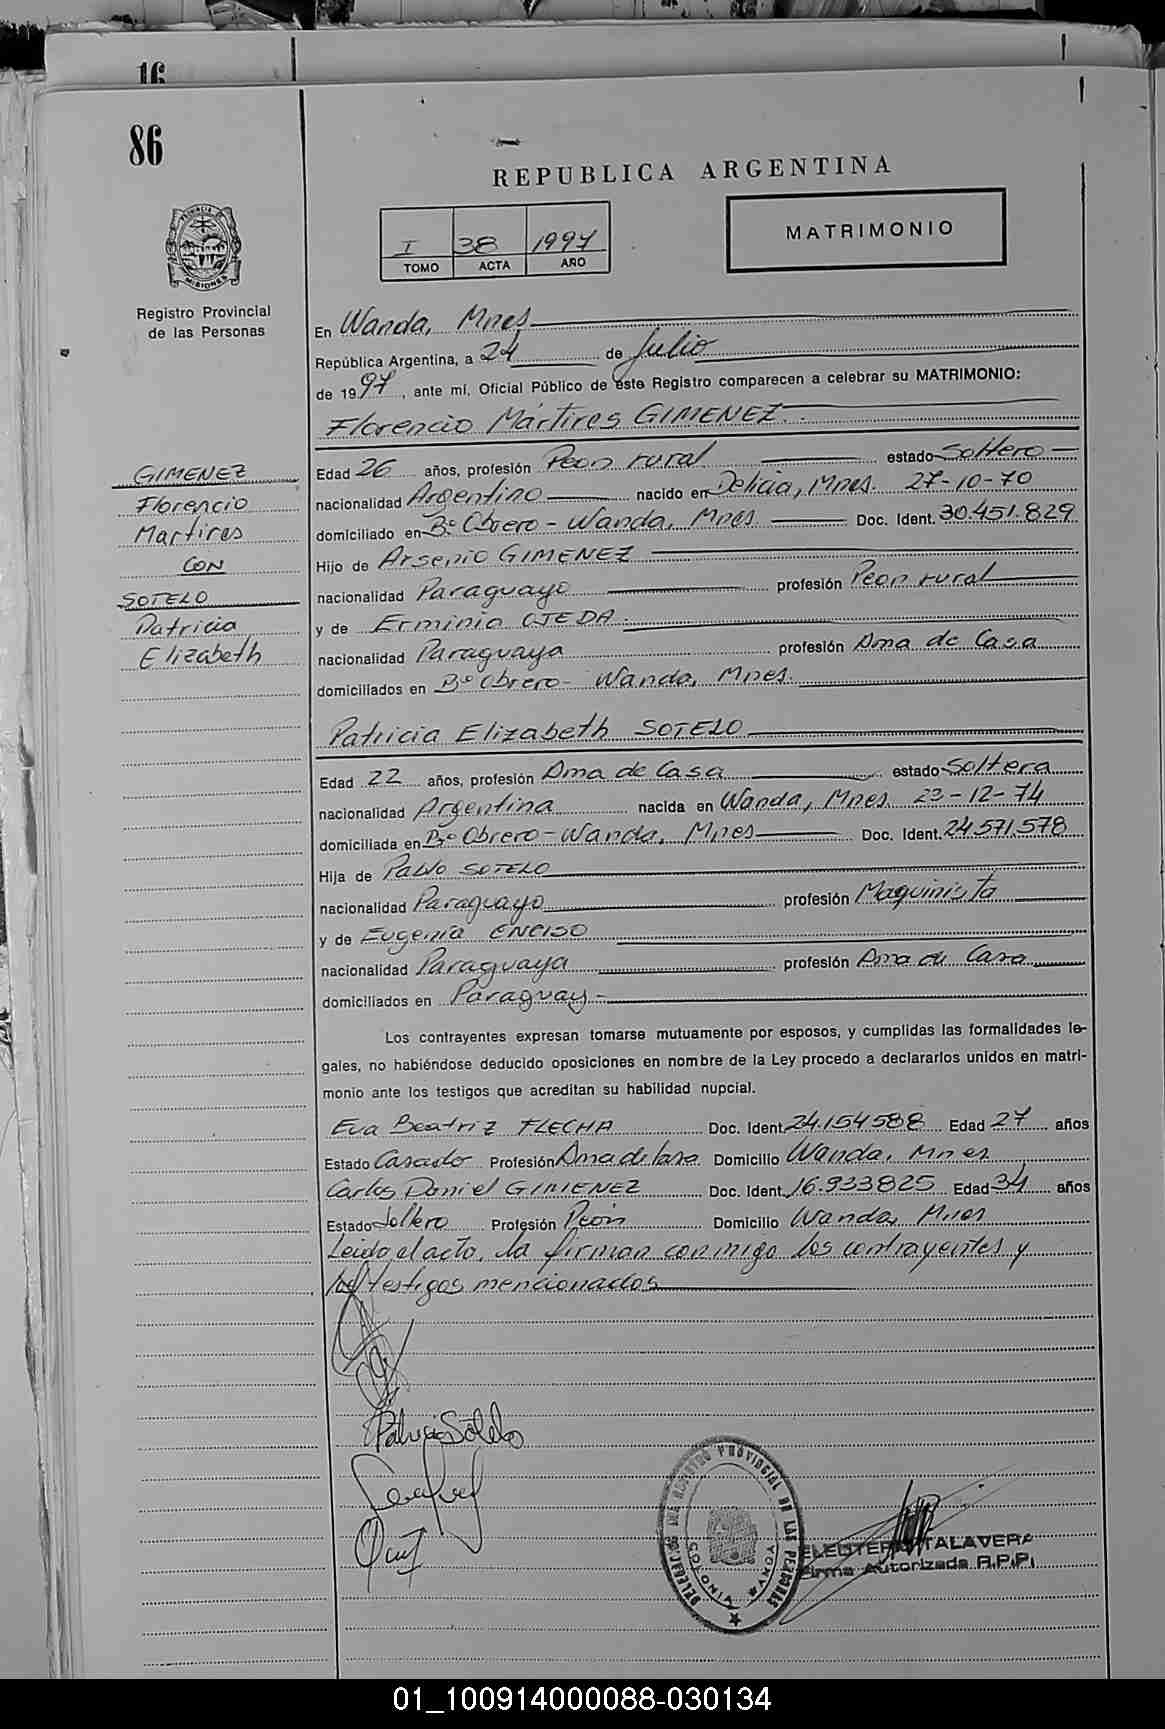 16
86
REPUBLICA ARGENTINA
I 38 1997
TOMO ACTA AÑO
MATRIMONIO
PROVINCIA DE MISIONES
Registro Provincial
de las Personas
En Wanda, Mnes
República Argentina, a 24 de Julio
de 1997, ante mí, Oficial Público de este Registro comparecen a celebrar su MATRIMONIO:
Florencio Mártires GIMENEZ
GIMENEZ
Florencio
Martires
CON
SOTELO
Patricia
Elizabeth
Edad 26 años, profesión Peon rural estado Soltero
nacionalidad Argentino nacido en Delicia, Mnes. 27-10-70
domiciliado en Bº Obrero - Wanda, Mnes Doc. Ident. 30.451.829
Hijo de Arsenio GIMENEZ
nacionalidad Paraguayo profesión Peon rural
y de Erminia OJEDA
nacionalidad Paraguaya profesión Ama de Casa
domiciliados en Bº Obrero - Wanda, Mnes.
Patricia Elizabeth SOTELO
Edad 22 años, profesión Ama de Casa estado Soltera
nacionalidad Argentina nacida en Wanda, Mnes 23-12-74
domiciliada en Bº Obrero - Wanda, Mnes Doc. Ident. 24.571.578
Hija de Pablo SOTELO
nacionalidad Paraguayo profesión Maquinista
y de Eugenia ENCISO
nacionalidad Paraguaya profesión Ama de Casa
domiciliados en Paraguay -
Los contrayentes expresan tomarse mutuamente por esposos, y cumplidas las formalidades le-
gales, no habiéndose deducido oposiciones en nombre de la Ley procedo a declararlos unidos en matri-
monio ante los testigos que acreditan su habilidad nupcial.
Eva Beatriz FLECHA Doc. Ident 24.154.588 Edad 27 años
Estado Casado Profesión Ama de Casa Domicilio Wanda, Mnes
Carlos Daniel GIMENEZ Doc. Ident. 16.933825 Edad 34 años
Estado Soltero Profesión Peon Domicilio Wanda, Mnes
Leido el acto, la firman conmigo los contrayentes y
los testigos mencionados
Patricia Sotelo
REGISTRO PROVINCIAL DE LAS PERSONAS
COLONIA WANDA
TALAVERA
Firma Autorizada R.P.P.
01_100914000088-030134